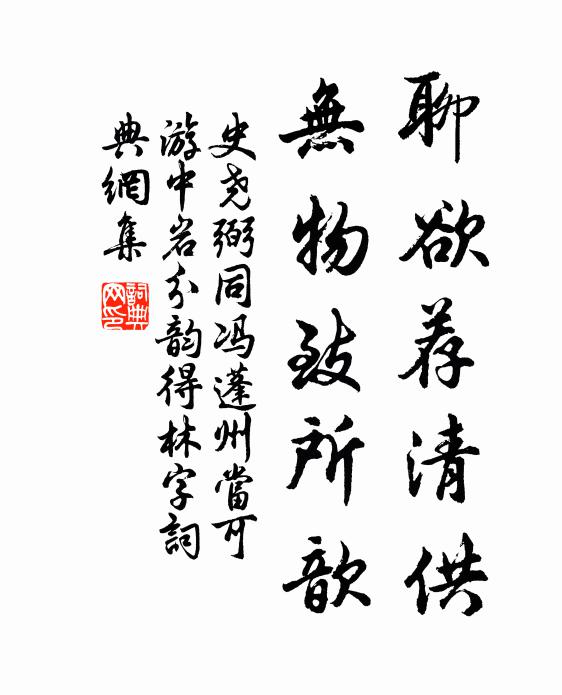 聊欲荐清供
無物致所歆
史尧弼同冯蓬州當可
游中岩分韵得林字詞
典網集
詞典
网印